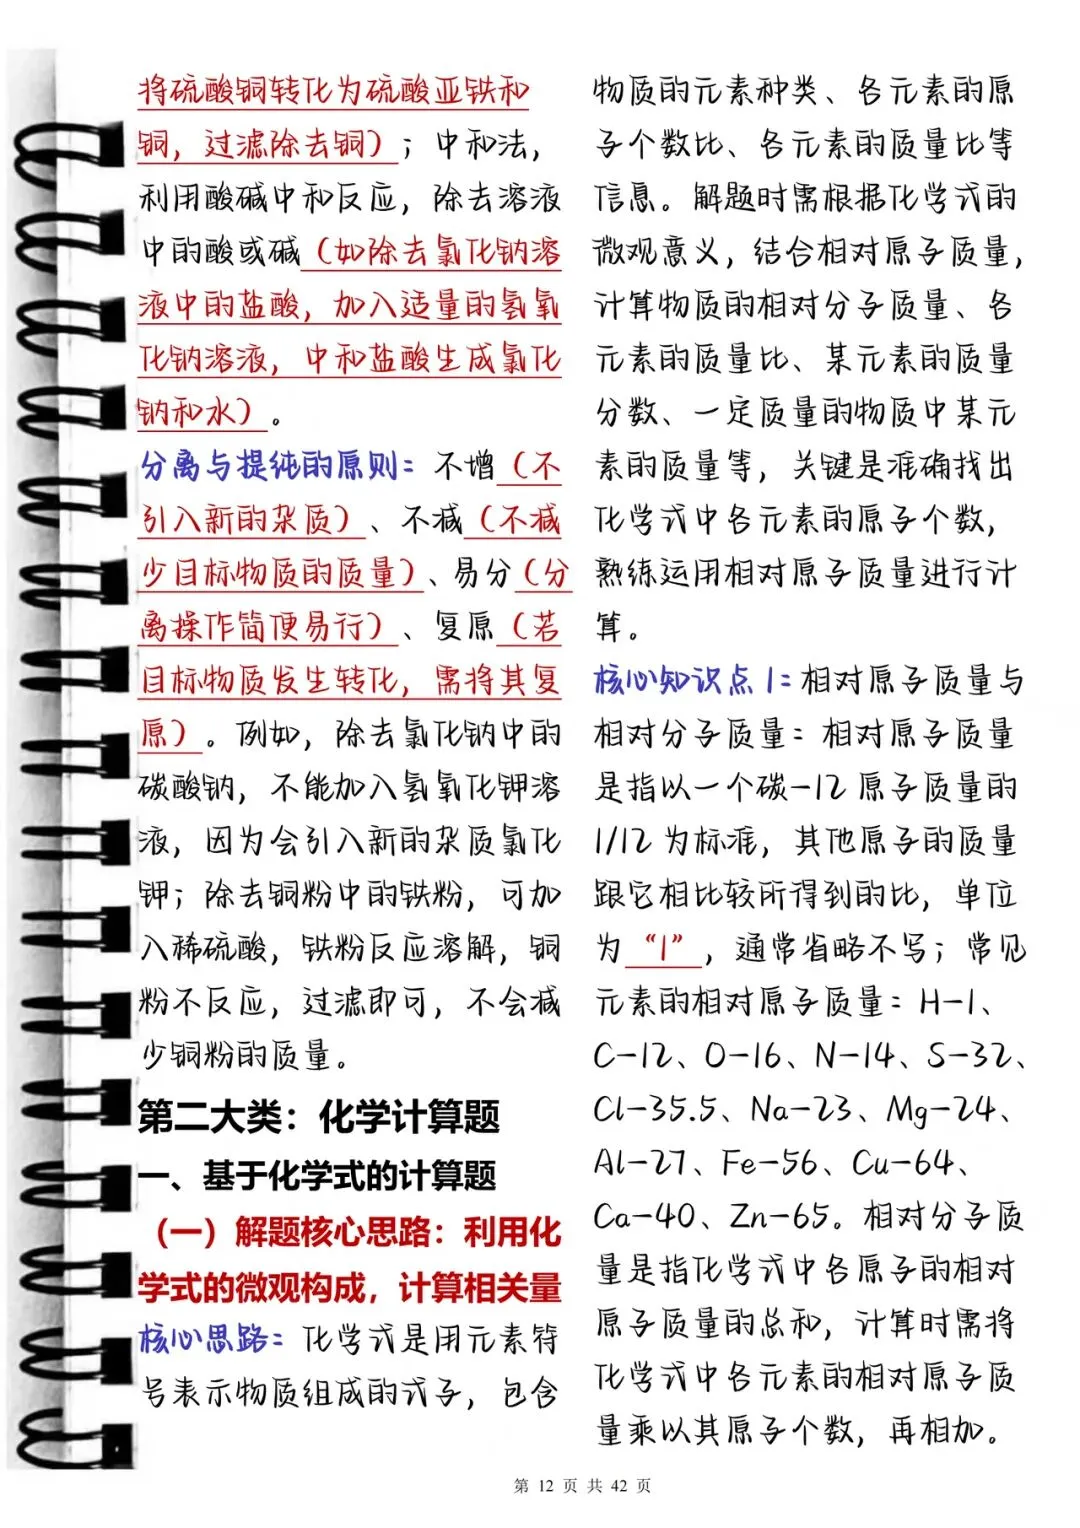 将硫酸铜转化为硫酸亚铁和
铜，过滤除去铜）；中和法，
利用酸碱中和反应，除去溶液
中的酸或碱（如除去氯化钠溶
液中的盐酸，加入适量的氢氧
化钠溶液，中和盐酸生成氯化
钠和水）。
分离与提纯的原则：不增（不
引入新的杂质）、不减（不减
少目标物质的质量）、易分（分
离操作简便易行）、复原（若
目标物质发生转化，需将其复
原）。例如，除去氯化钠中的
碳酸钠，不能加入氢氧化钾溶
液，因为会引入新的杂质氯化
钾；除去铜粉中的铁粉，可加
入稀硫酸，铁粉反应溶解，铜
粉不反应，过滤即可，不会减
少铜粉的质量。
第二大类：化学计算题
一、基于化学式的计算题
（一）解题核心思路：利用化
学式的微观构成，计算相关量
核心思路：化学式是用元素符
号表示物质组成的式子，包含
物质的元素种类、各元素的原
子个数比、各元素的质量比等
信息。解题时需根据化学式的
微观意义，结合相对原子质量，
计算物质的相对分子质量、各
元素的质量比、某元素的质量
分数、一定质量的物质中某元
素的质量等，关键是准确找出
化学式中各元素的原子个数，
熟练运用相对原子质量进行计
算。
核心知识点1：相对原子质量与
相对分子质量：相对原子质量
是指以一个碳-12 原子质量的
1/12 为标准，其他原子的质量
跟它相比较所得到的比，单位
为“1”，通常省略不写；常见
元素的相对原子质量：H-1、
C-12、O-16、N-14、S-32、
Cl-35.5、Na-23、Mg-24、
Al-27、Fe-56、Cu-64、
Ca-40、Zn-65。相对分子质
量是指化学式中各原子的相对
原子质量的总和，计算时需将
化学式中各元素的相对原子质
量乘以其原子个数，再相加。
第 12 页 共 42 页